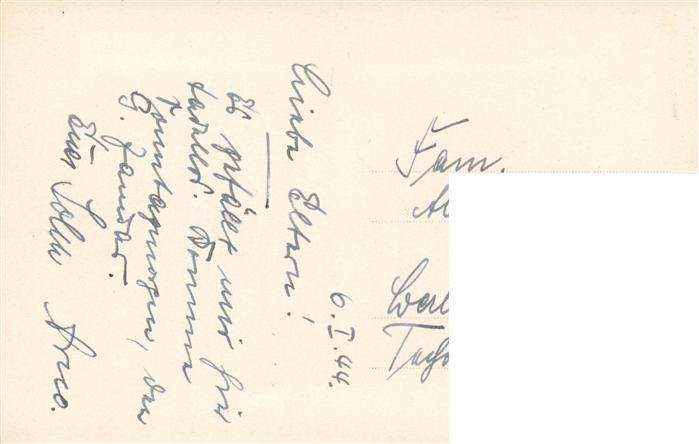 6.I.44.
Liebe Eltern!
Es gefällt mir hier
tadellos. Komme
Sonntagmorgen, den
9. Januar.
Euer Sohn Arno.
Fam.